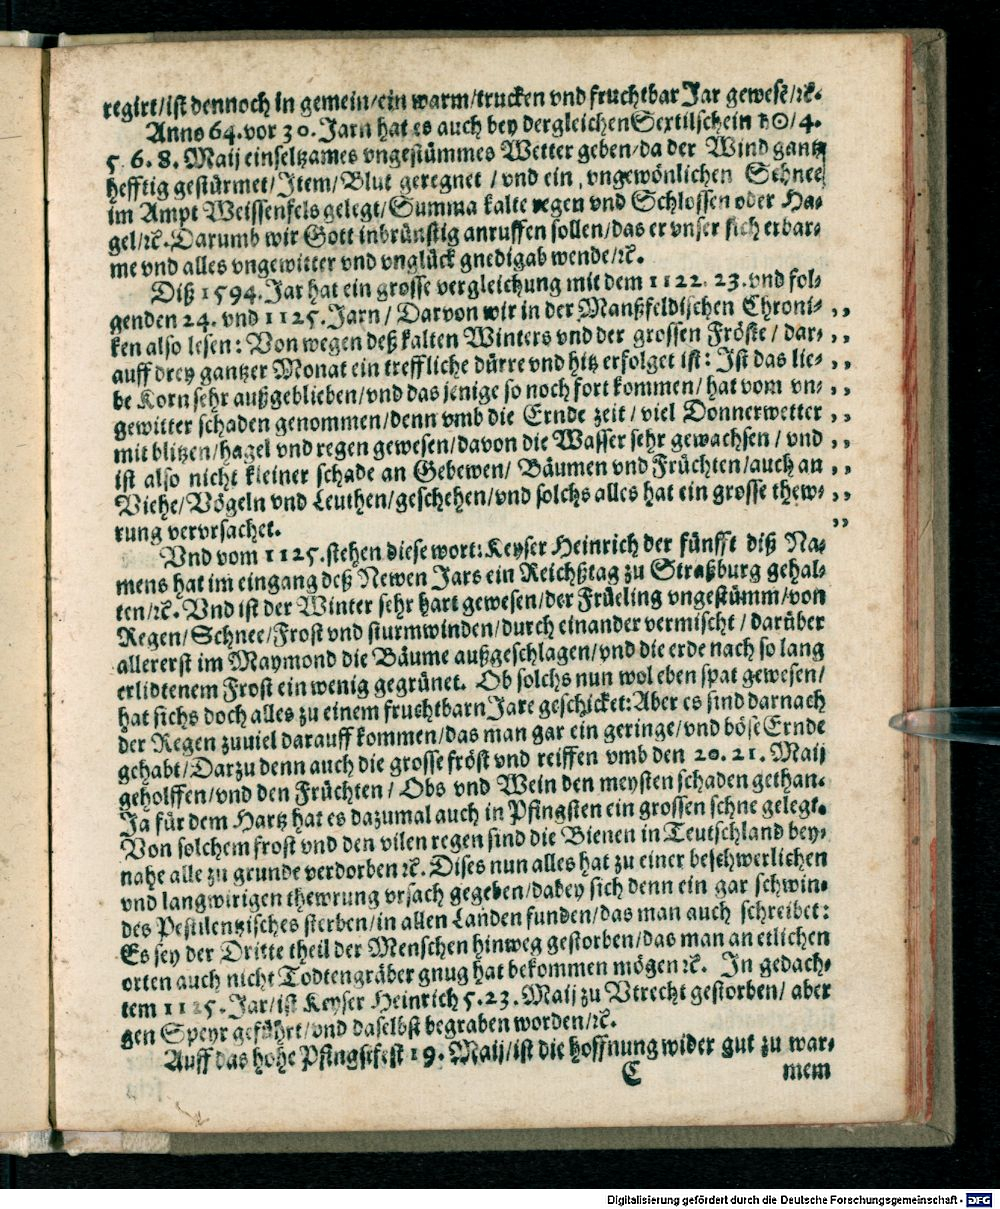 regirt/ist dennoch in gemein/ein warm/trucken vnd fruchtbar Jar gewese/ꝛc.
Anno 64. vor 30. Jarn hat es auch bey dergleichen Sextilschein ♄☉/4.
5. 6. 8. Maij einseltzames vngestümmes Wetter geben/da der Wind gantz
hefftig gestürmet/Item/Blut geregnet / vnd ein, vngewönlichen Schnee
im Ampt Weissenfels gelegt/Summa kalte regen vnd Schlossen oder Ha-
gel/ꝛc. Darumb wir Gott inbrünstig anruffen sollen/das er vnser sich erbar-
me vnd alles vngewitter vnd vnglück gnedig ab wende/ꝛc.
Diß 1594. Jar hat ein grosse vergleichung mit dem 1122. 23. vnd fol-
genden 24. vnd 1125. Jarn / Darvon wir in der Manßfeldischen Chroni- ,,
ken also lesen: Von wegen deß kalten Winters vnd der grossen Fröste / dar- ,,
auff drey gantzer Monat ein treffliche dürre vnd hitz erfolget ist: Ist das lie- ,,
be Korn sehr außgeblieben/vnd das jenige so noch fort kommen/ hat vom vn- ,,
gewitter schaden genommen/denn vmb die Ernde zeit / viel Donnerwetter ,,
mit blitzen/hagel vnd regen gewesen/davon die Wasser sehr gewachsen / vnd ,,
ist also nicht kleiner schade an Gebewen/ Bäumen vnd Früchten/auch an ,,
Viehe/Vögeln vnd Leuthen/geschehen/vnd solchs alles hat ein grosse thew- ,,
rung vervrsachet. ,,
Vnd vom 1125. stehen diese wort: Keyser Heinrich der fünfft diß Na-
mens hat im eingang deß Newen Jars ein Reichßtag zu Straßburg gehal-
ten/ꝛc. Vnd ist der Winter sehr hart gewesen/der Früeling vngestümm/von
Regen/Schnee/Frost vnd sturmwinden/durch einander vermischt / darüber
allererst im Maymond die Bäume außgeschlagen/vnd die erde nach so lang
erlidtenem Frost ein wenig gegrünet. Ob solchs nun wol eben spat gewesen/
hat sichs doch alles zu einem fruchtbarn Jare geschicket: Aber es sind darnach
der Regen zuuiel darauff kommen/das man gar ein geringe/vnd böse Ernde
gehabt/Darzu denn auch die grosse fröst vnd reiffen vmb den 20. 21. Maij
geholffen/vnd den Früchten / Obs vnd Wein den meysten schaden gethan.
Ja für dem Hartz hat es dazumal auch in Pfingsten ein grossen schne gelegt.
Von solchem frost vnd den vilen regen sind die Bienen in Teutschland bey-
nahe alle zu grunde verdorben ꝛc. Dises nun alles hat zu einer beschwerlichen
vnd langwirigen thewrung vrsach gegeben/dabey sich denn ein gar schwin-
des Pestilentzisches sterben/in allen Landen funden/das man auch schreibet:
Es sey der Dritte theil der Menschen hinweg gestorben/das man an etlichen
orten auch nicht Todtengräber gnug hat bekommen mögen ꝛc. In gedach-
tem 1125. Jar/ist Keyser Heinrich 5. 23. Maij zu Vtrecht gestorben/ aber
gen Speyr geführt/vnd daselbst begraben worden/ꝛc.
Auff das hohe Pfingstfest 19. Maij/ist die hoffnung wider gut zu war-
C mem
Digitalisierung gefördert durch die Deutsche Forschungsgemeinschaft - DFG